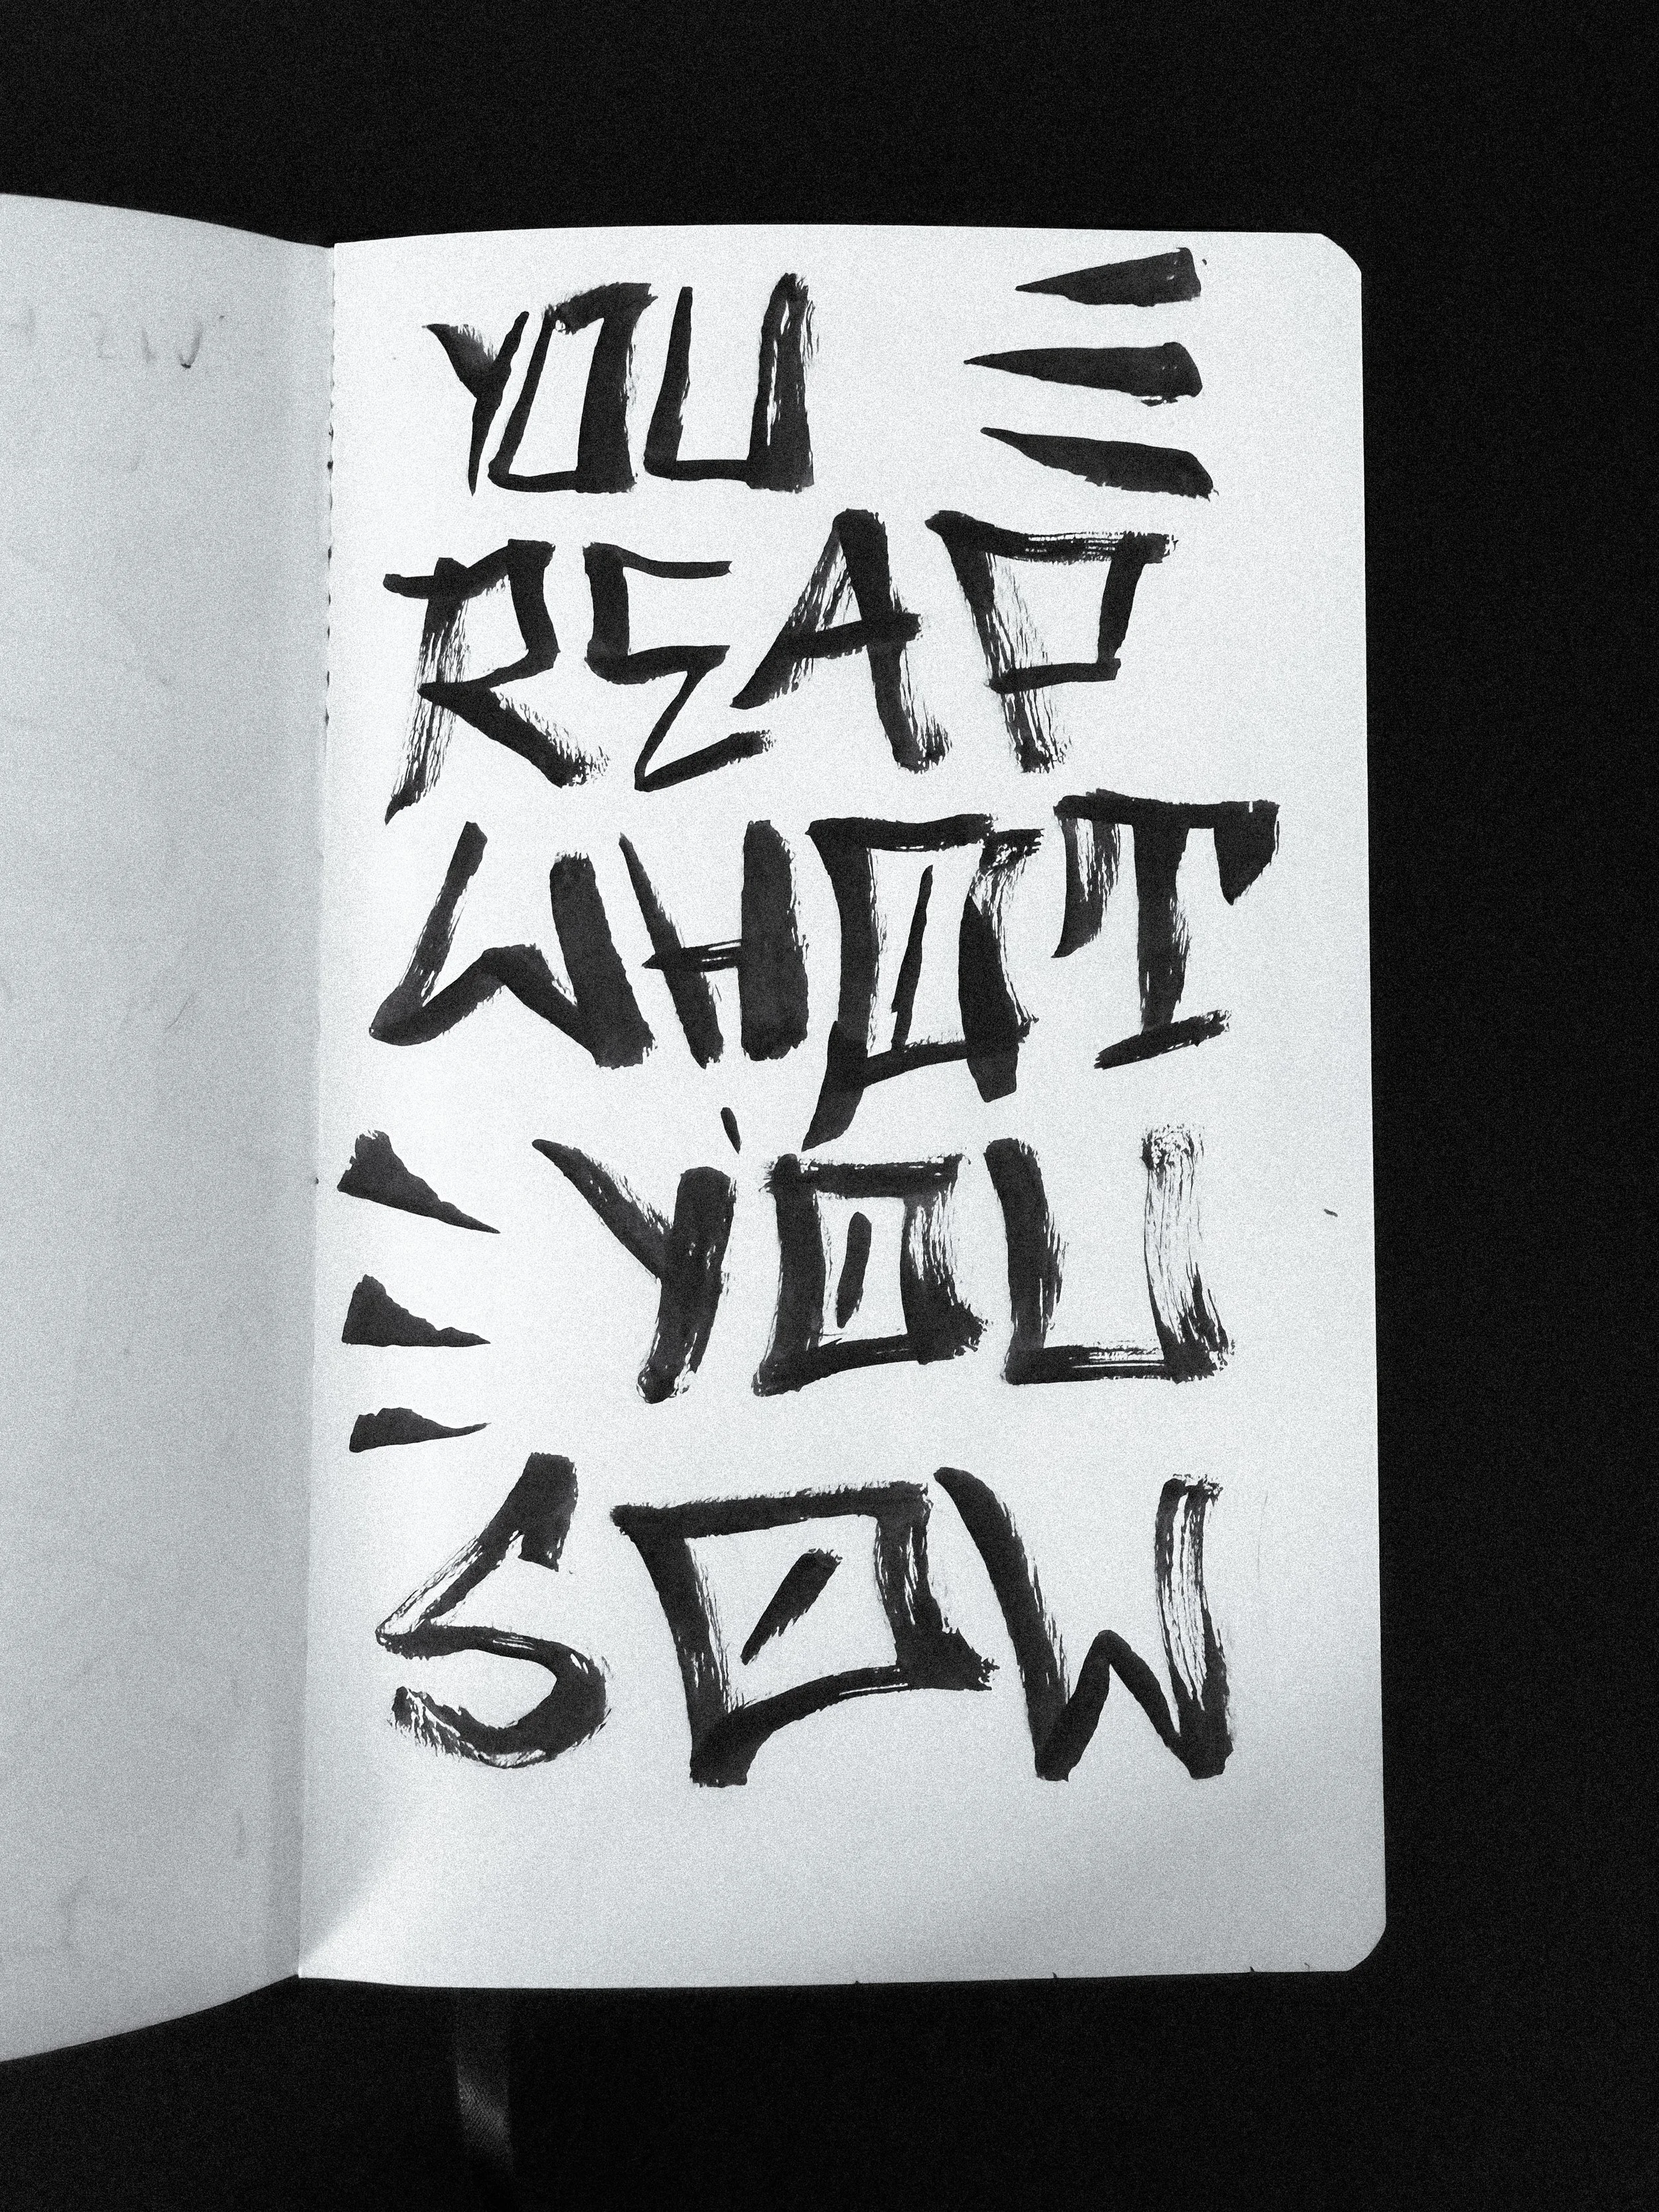 YOU
REAP
WHAT
YOU
SOW